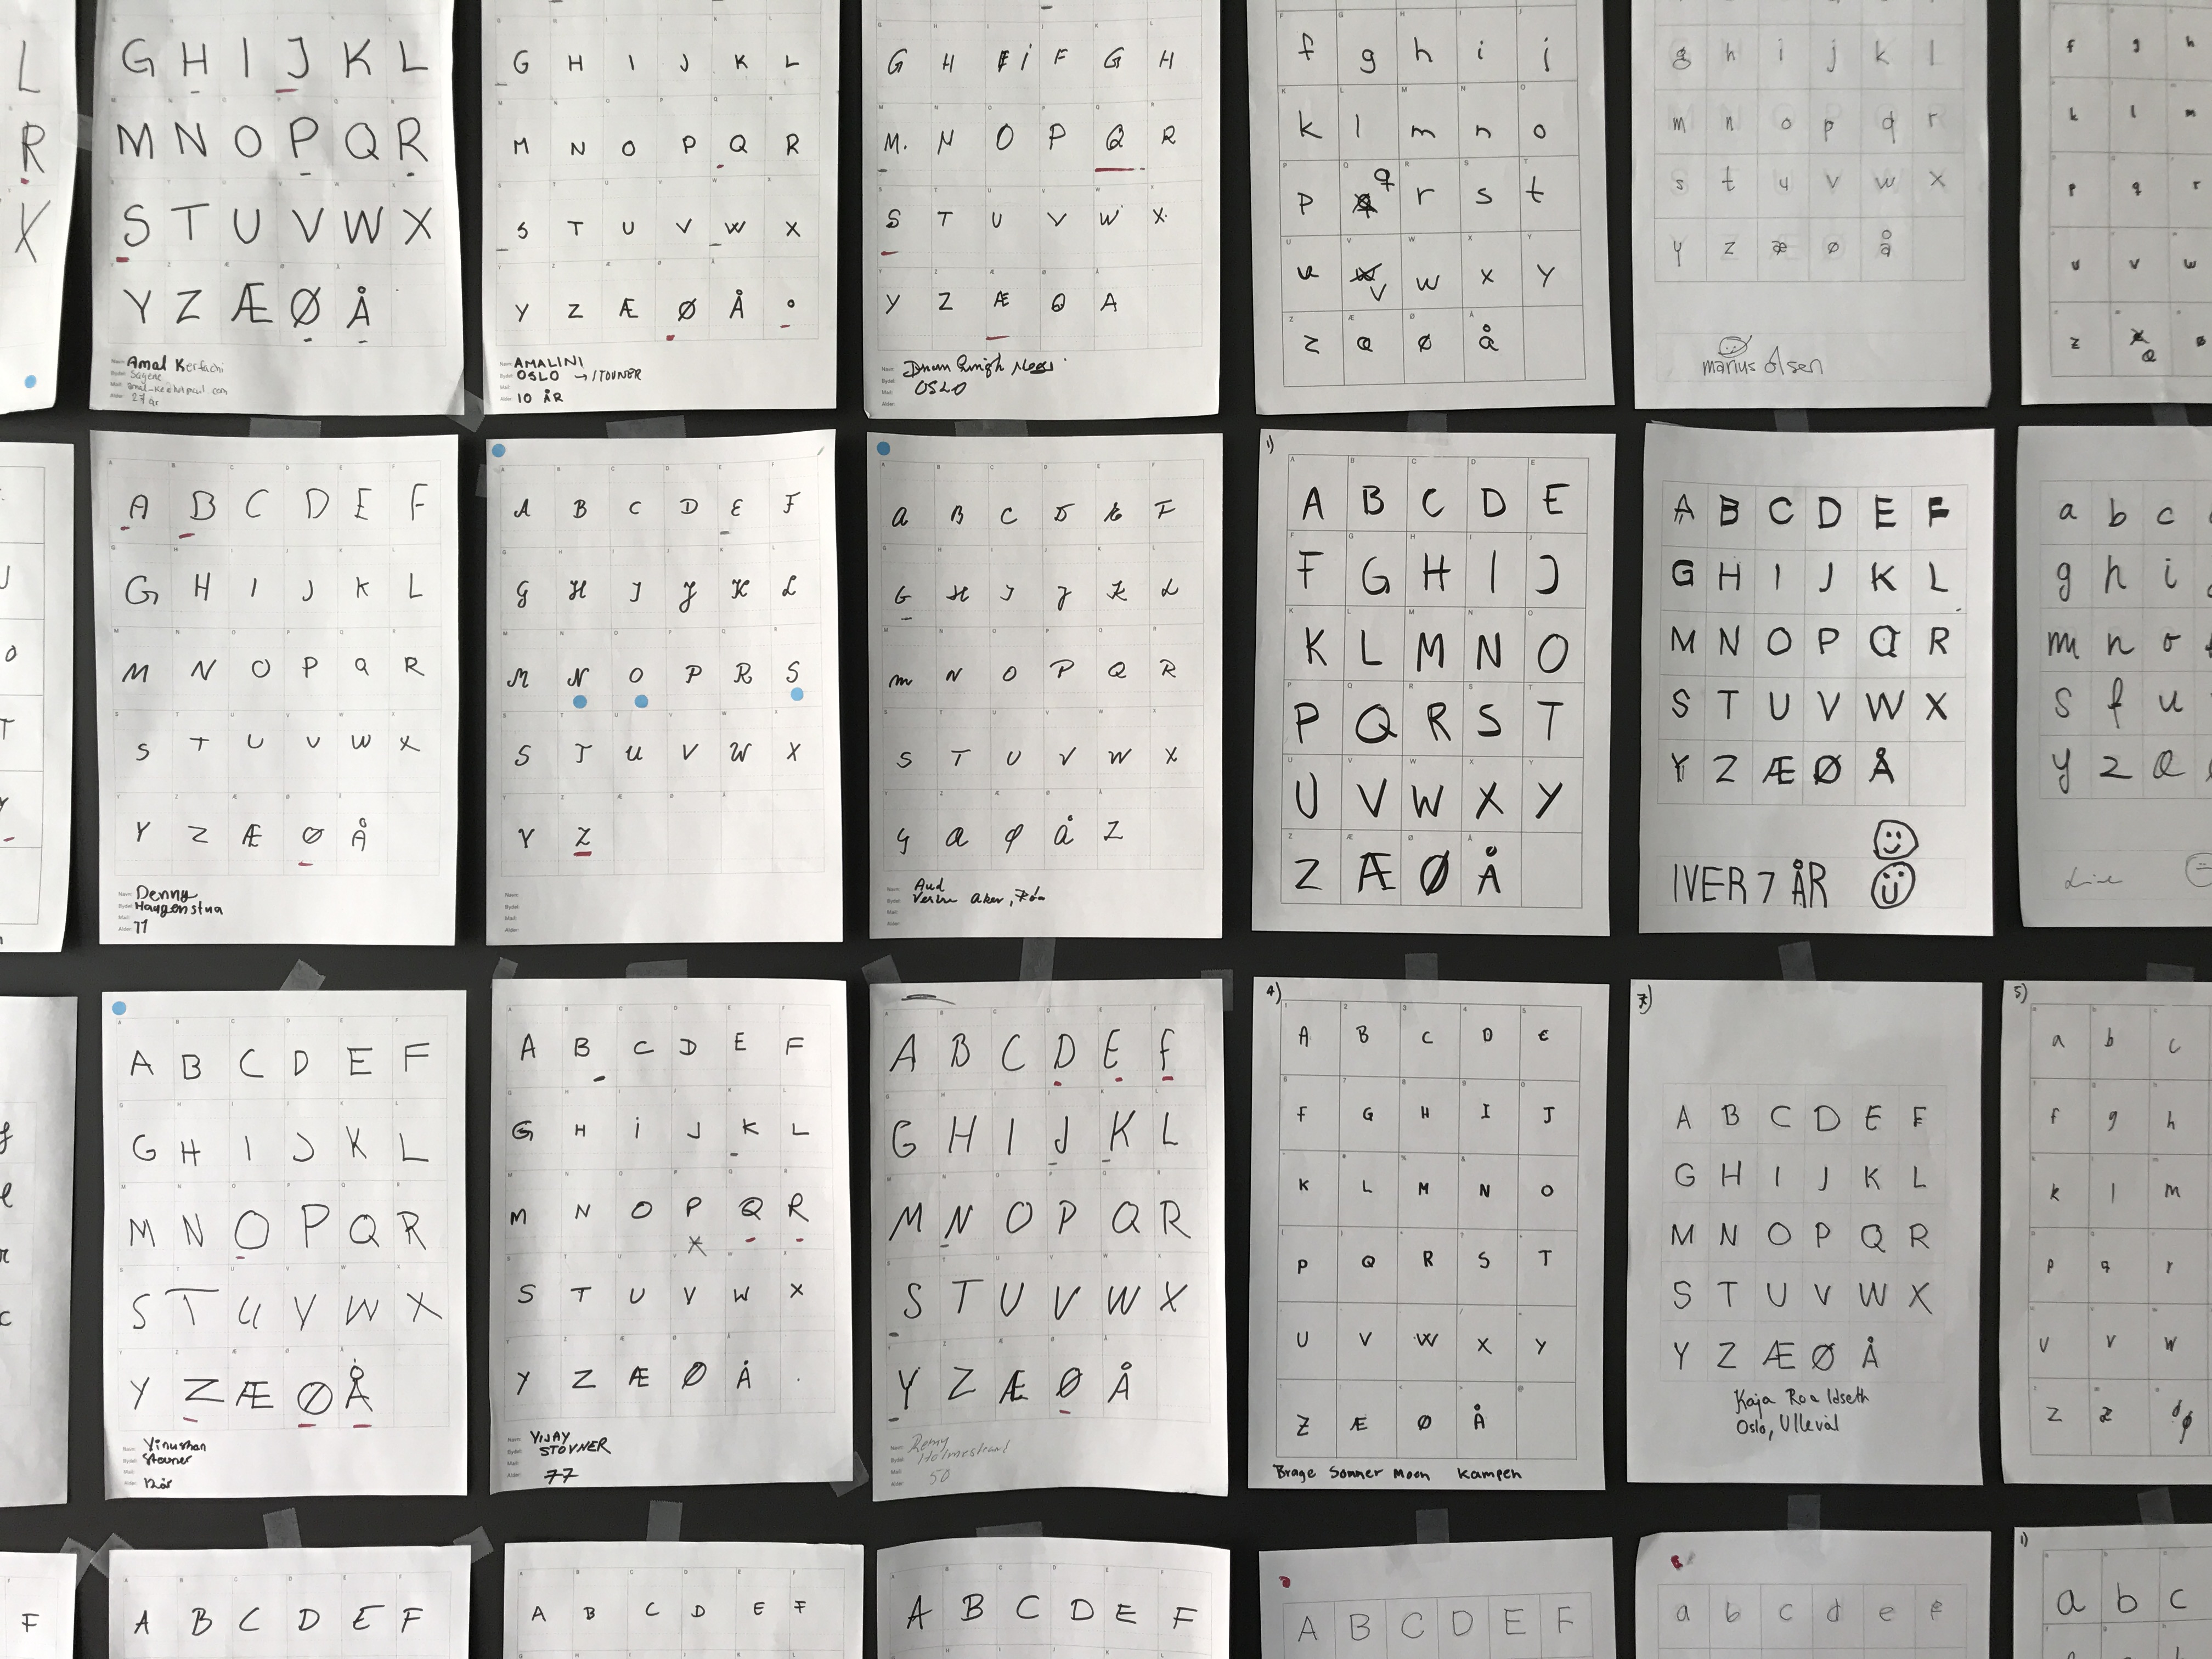 L
R
X
G H I J K L
M N O P Q R
S T U V W X
Y Z Æ Ø Å
Navn: Amal Kerfachi
Bydel: Sagene
Mail:
Alder: 27 år
G H I J K L
M N O P Q R
S T U V W X
Y Z Æ Ø Å
Navn: AMALINI
Bydel: OSLO → STOVNER
Mail:
Alder: 10 ÅR
G H i F G H
M. N O P Q R
S T U V W X
Y Z Æ Ø A
Navn: Singh
Bydel: OSLO
Mail:
Alder:
f g h i j
k l m n o
p q r s t
u v w x y
z æ ø å
g h i j k l
m n o p q r
s t u v w x
y z æ ø å
marius olsen
f g h
k l m
p q r
u v w
z æ ø
J
O
T
Y
A B C D E F
G H I J K L
M N O P Q R
S T U V W X
Y Z Æ Ø Å
Navn: Denny
Bydel: Haugenstua
Mail:
Alder: 11
A B C D E F
G H I J K L
M N O P R S
S T U V W X
Y Z
Navn:
Bydel:
Mail:
Alder:
a B C D E F
G H I J K L
m N O P Q R
S T U V W X
y æ ø å Z
Navn: Aud
Bydel: Vestre Aker,
Mail:
Alder:
1)
A B C D E
F G H I J
K L M N O
P Q R S T
U V W X Y
Z Æ Ø Å
A B C D E F
G H I J K L
M N O P Q R
S T U V W X
Y Z Æ Ø Å
IVER 7 ÅR
a b c
g h i
m n o
s t u
y z æ
A B C D E F
G H I J K L
M N O P Q R
S T U V W X
Y Z Æ Ø Å
Navn: Vinushan
Bydel: Stovner
Mail:
Alder: 12 år
A B C D E F
G H i J K L
M N O P Q R
S T U V W X
Y Z Æ Ø Å
Navn: VIJAY
Bydel: STOVNER
Mail:
Alder: 77
A B C D E f
G H I J K L
M N O P Q R
S T U V W X
Y Z Æ Ø Å
Navn: Remy
Bydel: Holmestrand
Mail:
Alder: 50
4)
A B C D E
F G H I J
K L M N O
P Q R S T
U V W X Y
Z Æ Ø Å
Brage Sonner Moon Kampen
7)
A B C D E F
G H I J K L
M N O P Q R
S T U V W X
Y Z Æ Ø Å
Kaja Roaldseth
Oslo, Ullevål
5)
a b c
f g h
k l m
p q r
u v w
z æ ø
F
A B C D E F
A B C D E F
A B C D E F
A B C D E F
a b c d e f
1)
a b c